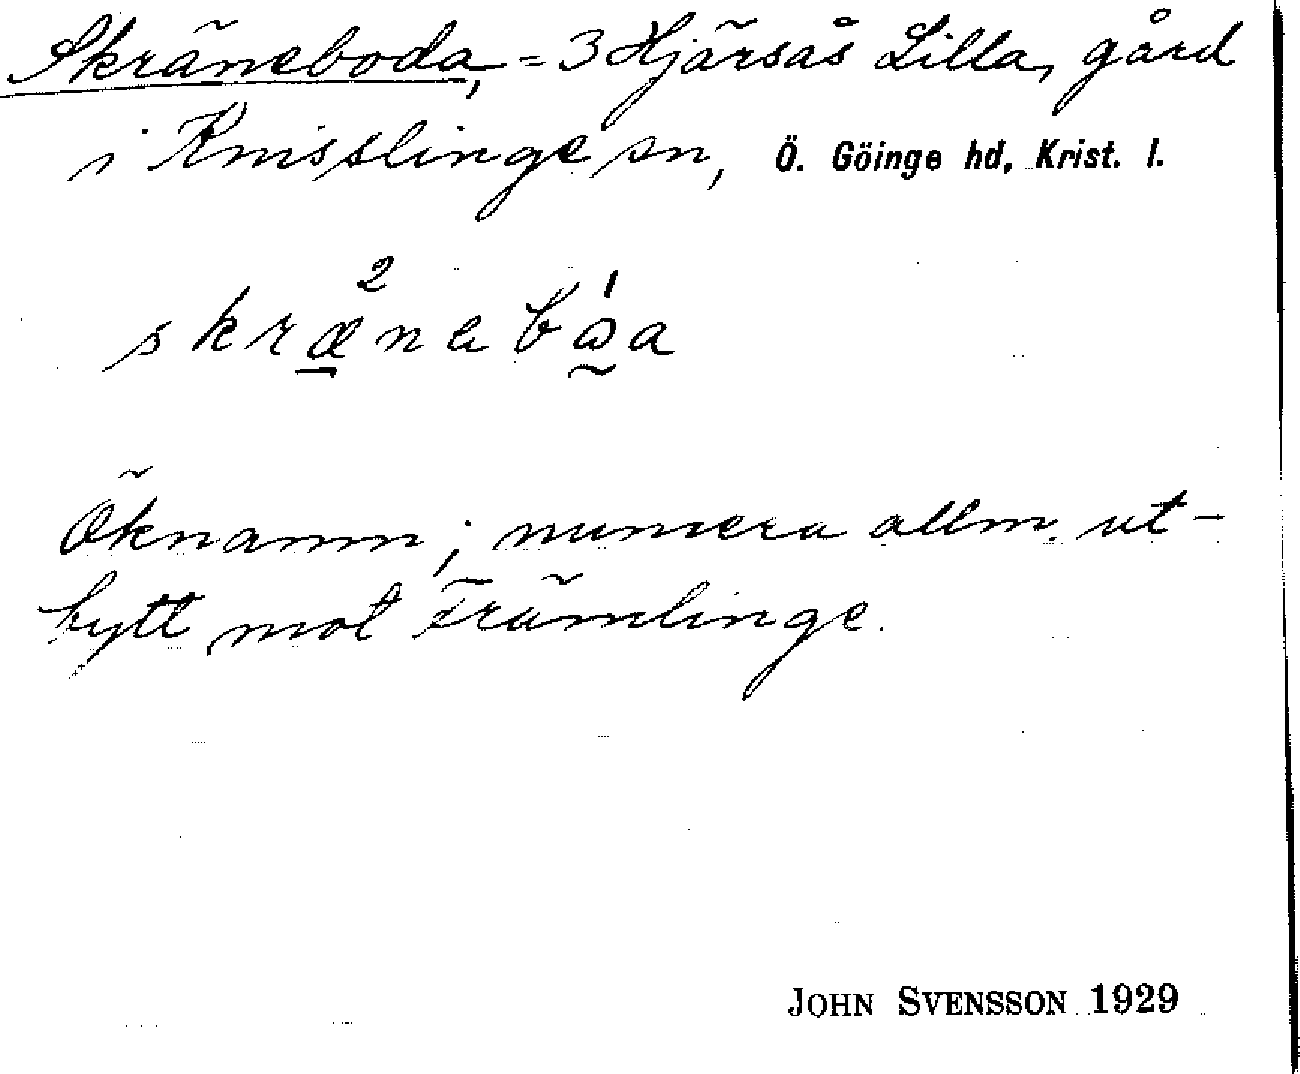 Skräneboda, = 3 Hjärsås Lilla, gård
i Knisslinge sn, Ö. Göinge hd, Krist. l.
skrænaba
Öknamn; numera allm. ut-
bytt mot Främlinge.
JOHN SVENSSON 1929